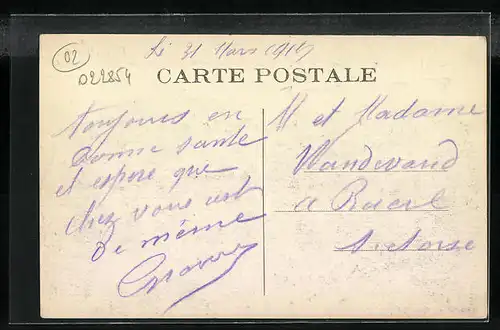 02
D22854
Le 31 Mars 1915
CARTE POSTALE
Toujours en
bonne sante
et espere que
chez vous est
de même
M et Madame
Wandevand
a